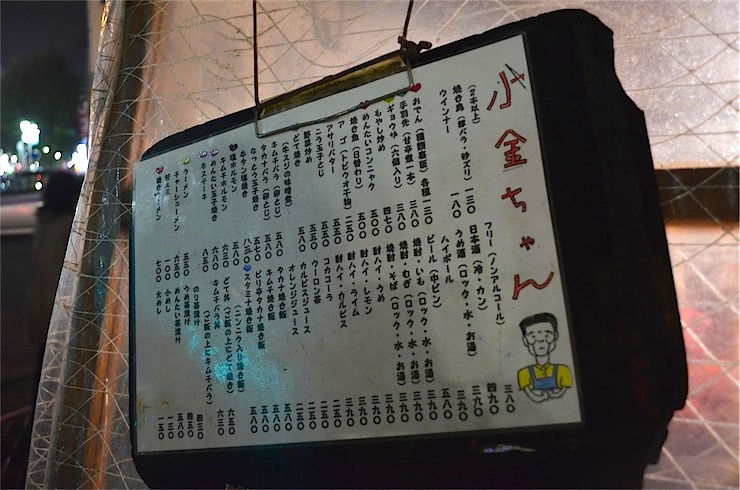 小金ちゃん
(2本以上)
焼き鳥(豚バラ・砂ズリ) 一三〇
ウインナー 一八〇
おでん(種類裏面)各種 一三〇
手羽先(甘辛煮一本)
ギョウザ(六個入り) 三八〇
もやし炒め 四七〇
めんたいコンニャク 五〇〇
焼き魚(日替わり)
アゴ(トビウオ干物) 二五〇
アサリバター 五五〇
ニラ玉子とじ 五五〇
野菜炒め
どて焼き
(牛スジの味噌煮)
キムチバラ(卵とじ) 五八〇
タカナバラ(卵とじ)
なっとう玉子焼き 五七〇
牛タン塩焼き 八五〇
塩ホルモン 五八〇
キムチホルモン 六八〇
めんたい玉子焼き
牛ステーキ 八五〇
ラーメン 五五〇
チャーシューメン 六五〇
替え玉 一〇〇
焼きラーメン 七〇〇
フリー(ノンアルコール) 三八〇
日本酒(冷・カン) 四九〇
うめ酒(ロック・水・お湯) 三九〇
ハイボール 三九〇
ビール(中ビン) 五八〇
焼酎・いも(ロック・水・お湯) 三九〇
焼酎・むぎ(ロック・水・お湯) 三九〇
焼酎・そば(ロック・水・お湯) 三九〇
酎ハイ・うめ 三九〇
酎ハイ・レモン 三九〇
酎ハイ・ライム 三九〇
酎ハイ・カルピス 三九〇
コカコーラ 二五〇
ウーロン茶 二五〇
カルピスジュース 二五〇
オレンジジュース 二五〇
タカナ焼き飯 五八〇
キムチ焼き飯 五八〇
ピリ辛タカナ焼き飯 五八〇
スタミナ焼き飯 五八〇
(ニンニク入り焼き飯)
どて丼(ご飯の上にどて焼き) 六五〇
キムチバラ丼 六三〇
(ご飯の上にキムチバラ)
のり茶漬け 四三〇
うめ茶漬け 四五〇
めんたい茶漬け 五八〇
小めし 一三〇
大めし 一五〇